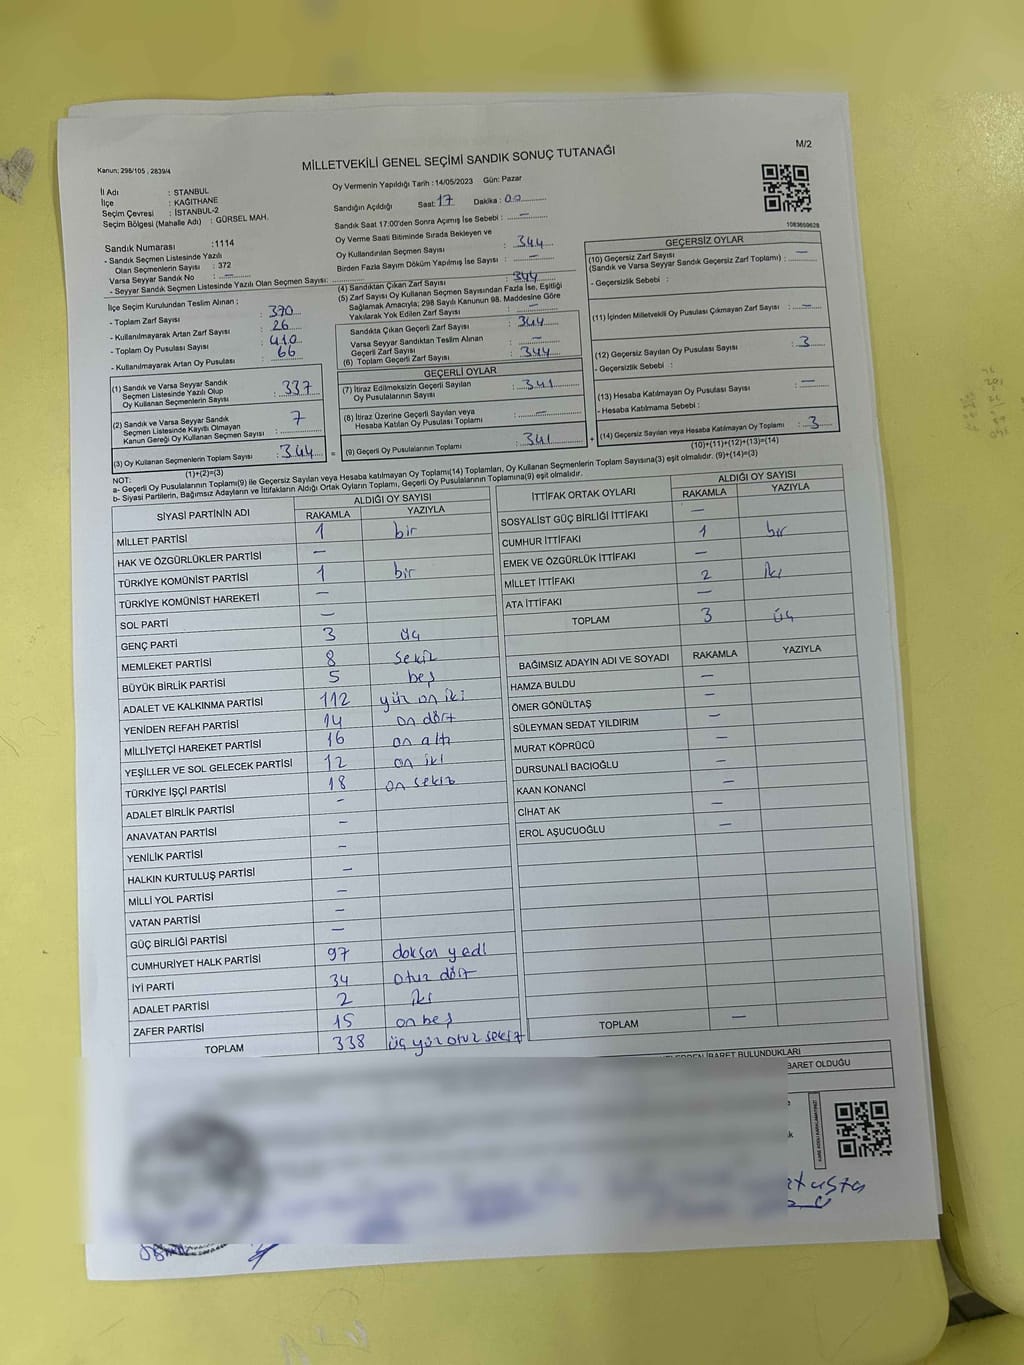 M/2
Kanun; 298/105 , 2839/4
MİLLETVEKİLİ GENEL SEÇİMİ SANDIK SONUÇ TUTANAĞI
İl Adı : STANBUL
İlçe : KAĞITHANE
Seçim Çevresi : İSTANBUL-2
Seçim Bölgesi (Mahalle Adı) : GÜRSEL MAH.
Oy Vermenin Yapıldığı Tarih : 14/05/2023 Gün: Pazar
Sandığın Açıldığı Saat: 17 Dakika : 00
Sandık Saat 17:00'den Sonra Açımış İse Sebebi : —
Oy Verme Saati Bitiminde Sırada Bekleyen ve
Oy Kullandırılan Seçmen Sayısı : 344
Birden Fazla Sayım Döküm Yapılmış İse Sayısı : —
1083669628
Sandık Numarası :1114
- Sandık Seçmen Listesinde Yazılı
Olan Seçmenlerin Sayısı : 372
Varsa Seyyar Sandık No : —
- Seyyar Sandık Seçmen Listesinde Yazılı Olan Seçmen Sayısı:
İlçe Seçim Kurulundan Teslim Alınan ;
- Toplam Zarf Sayısı : 370
- Kullanılmayarak Artan Zarf Sayısı : 26
- Toplam Oy Pusulası Sayısı : 410
- Kullanılmayarak Artan Oy Pusulası : 66
(1) Sandık ve Varsa Seyyar Sandık
Seçmen Listesinde Yazılı Olup
Oy Kullanan Seçmenlerin Sayısı : 337
(2) Sandık ve Varsa Seyyar Sandık
Seçmen Listesinde Kayıtlı Olmayan
Kanun Gereği Oy Kullanan Seçmen Sayısı : 7
(3) Oy Kullanan Seçmenlerin Toplam Sayısı : 344
(1)+(2)=(3)
(4) Sandıktan Çıkan Zarf Sayısı : 344
(5) Zarf Sayısı Oy Kullanan Seçmen Sayısından Fazla İse, Eşitliği
Sağlamak Amacıyla; 298 Sayılı Kanunun 98. Maddesine Göre
Yakılarak Yok Edilen Zarf Sayısı : —
Sandıkta Çıkan Geçerli Zarf Sayısı : 344
Varsa Seyyar Sandıktan Teslim Alınan
Geçerli Zarf Sayısı : —
(6) Toplam Geçerli Zarf Sayısı : 344
GEÇERLİ OYLAR
(7) İtiraz Edilmeksizin Geçerli Sayılan
Oy Pusulalarının Sayısı : 341
(8) İtiraz Üzerine Geçerli Sayılan veya
Hesaba Katılan Oy Pusulası Toplamı : —
= (9) Geçerli Oy Pusulalarının Toplamı : 341
GEÇERSİZ OYLAR
(10) Geçersiz Zarf Sayısı
(Sandık ve Varsa Seyyar Sandık Geçersiz Zarf Toplamı) : —
- Geçersizlik Sebebi :
(11) İçinden Milletvekili Oy Pusulası Çıkmayan Zarf Sayısı : —
(12) Geçersiz Sayılan Oy Pusulası Sayısı : 3
- Geçersizlik Sebebi :
(13) Hesaba Katılmayan Oy Pusulası Sayısı : —
- Hesaba Katılmama Sebebi :
+ (14) Geçersiz Sayılan veya Hesaba Katılmayan Oy Toplamı : 3
(10)+(11)+(12)+(13)=(14)
NOT:
a- Geçerli Oy Pusulaları Toplamı(9) ile Geçersiz Sayılan veya Hesaba katılmayan Oy Toplamı(14) Toplamları, Oy Kullanan Seçmenlerin Toplam Sayısına(3) eşit olmalıdır. (9)+(14)=(3)
b- Siyasi Partilerin, Bağımsız Adayların ve İttifakların Aldığı Ortak Oyların Toplamı, Geçerli Oy Pusulalarının Toplamına(9) eşit olmalıdır.
SİYASİ PARTİNİN ADI ALDIĞI OY SAYISI
RAKAMLA YAZIYLA
MİLLET PARTİSİ 1 bir
HAK VE ÖZGÜRLÜKLER PARTİSİ —
TÜRKİYE KOMÜNİST PARTİSİ 1 bir
TÜRKİYE KOMÜNİST HAREKETİ —
SOL PARTİ —
GENÇ PARTİ 3 üç
MEMLEKET PARTİSİ 8 sekiz
BÜYÜK BİRLİK PARTİSİ 5 beş
ADALET VE KALKINMA PARTİSİ 112 yüz on iki
YENİDEN REFAH PARTİSİ 14 on dört
MİLLİYETÇİ HAREKET PARTİSİ 16 on altı
YEŞİLLER VE SOL GELECEK PARTİSİ 12 on iki
TÜRKİYE İŞÇİ PARTİSİ 18 on sekiz
ADALET BİRLİK PARTİSİ —
ANAVATAN PARTİSİ —
YENİLİK PARTİSİ —
HALKIN KURTULUŞ PARTİSİ —
MİLLİ YOL PARTİSİ —
VATAN PARTİSİ —
GÜÇ BİRLİĞİ PARTİSİ —
CUMHURİYET HALK PARTİSİ 97 doksan yedi
İYİ PARTİ 34 otuz dört
ADALET PARTİSİ 2 iki
ZAFER PARTİSİ 15 on beş
TOPLAM 338 üç yüz otuz sekiz
İTTİFAK ORTAK OYLARI ALDIĞI OY SAYISI
RAKAMLA YAZIYLA
SOSYALİST GÜÇ BİRLİĞİ İTTİFAKI —
CUMHUR İTTİFAKI 1 bir
EMEK VE ÖZGÜRLÜK İTTİFAKI —
MİLLET İTTİFAKI 2 iki
ATA İTTİFAKI —
TOPLAM 3 üç
BAĞIMSIZ ADAYIN ADI VE SOYADI RAKAMLA YAZIYLA
HAMZA BULDU —
ÖMER GÖNÜLTAŞ —
SÜLEYMAN SEDAT YILDIRIM —
MURAT KÖPRÜCÜ —
DURSUNALİ BACIOĞLU —
KAAN KONANCİ —
CİHAT AK —
EROL AŞUCUOĞLU —
TOPLAM —
İBARET BULUNDUKLARI
BARET OLDUĞU